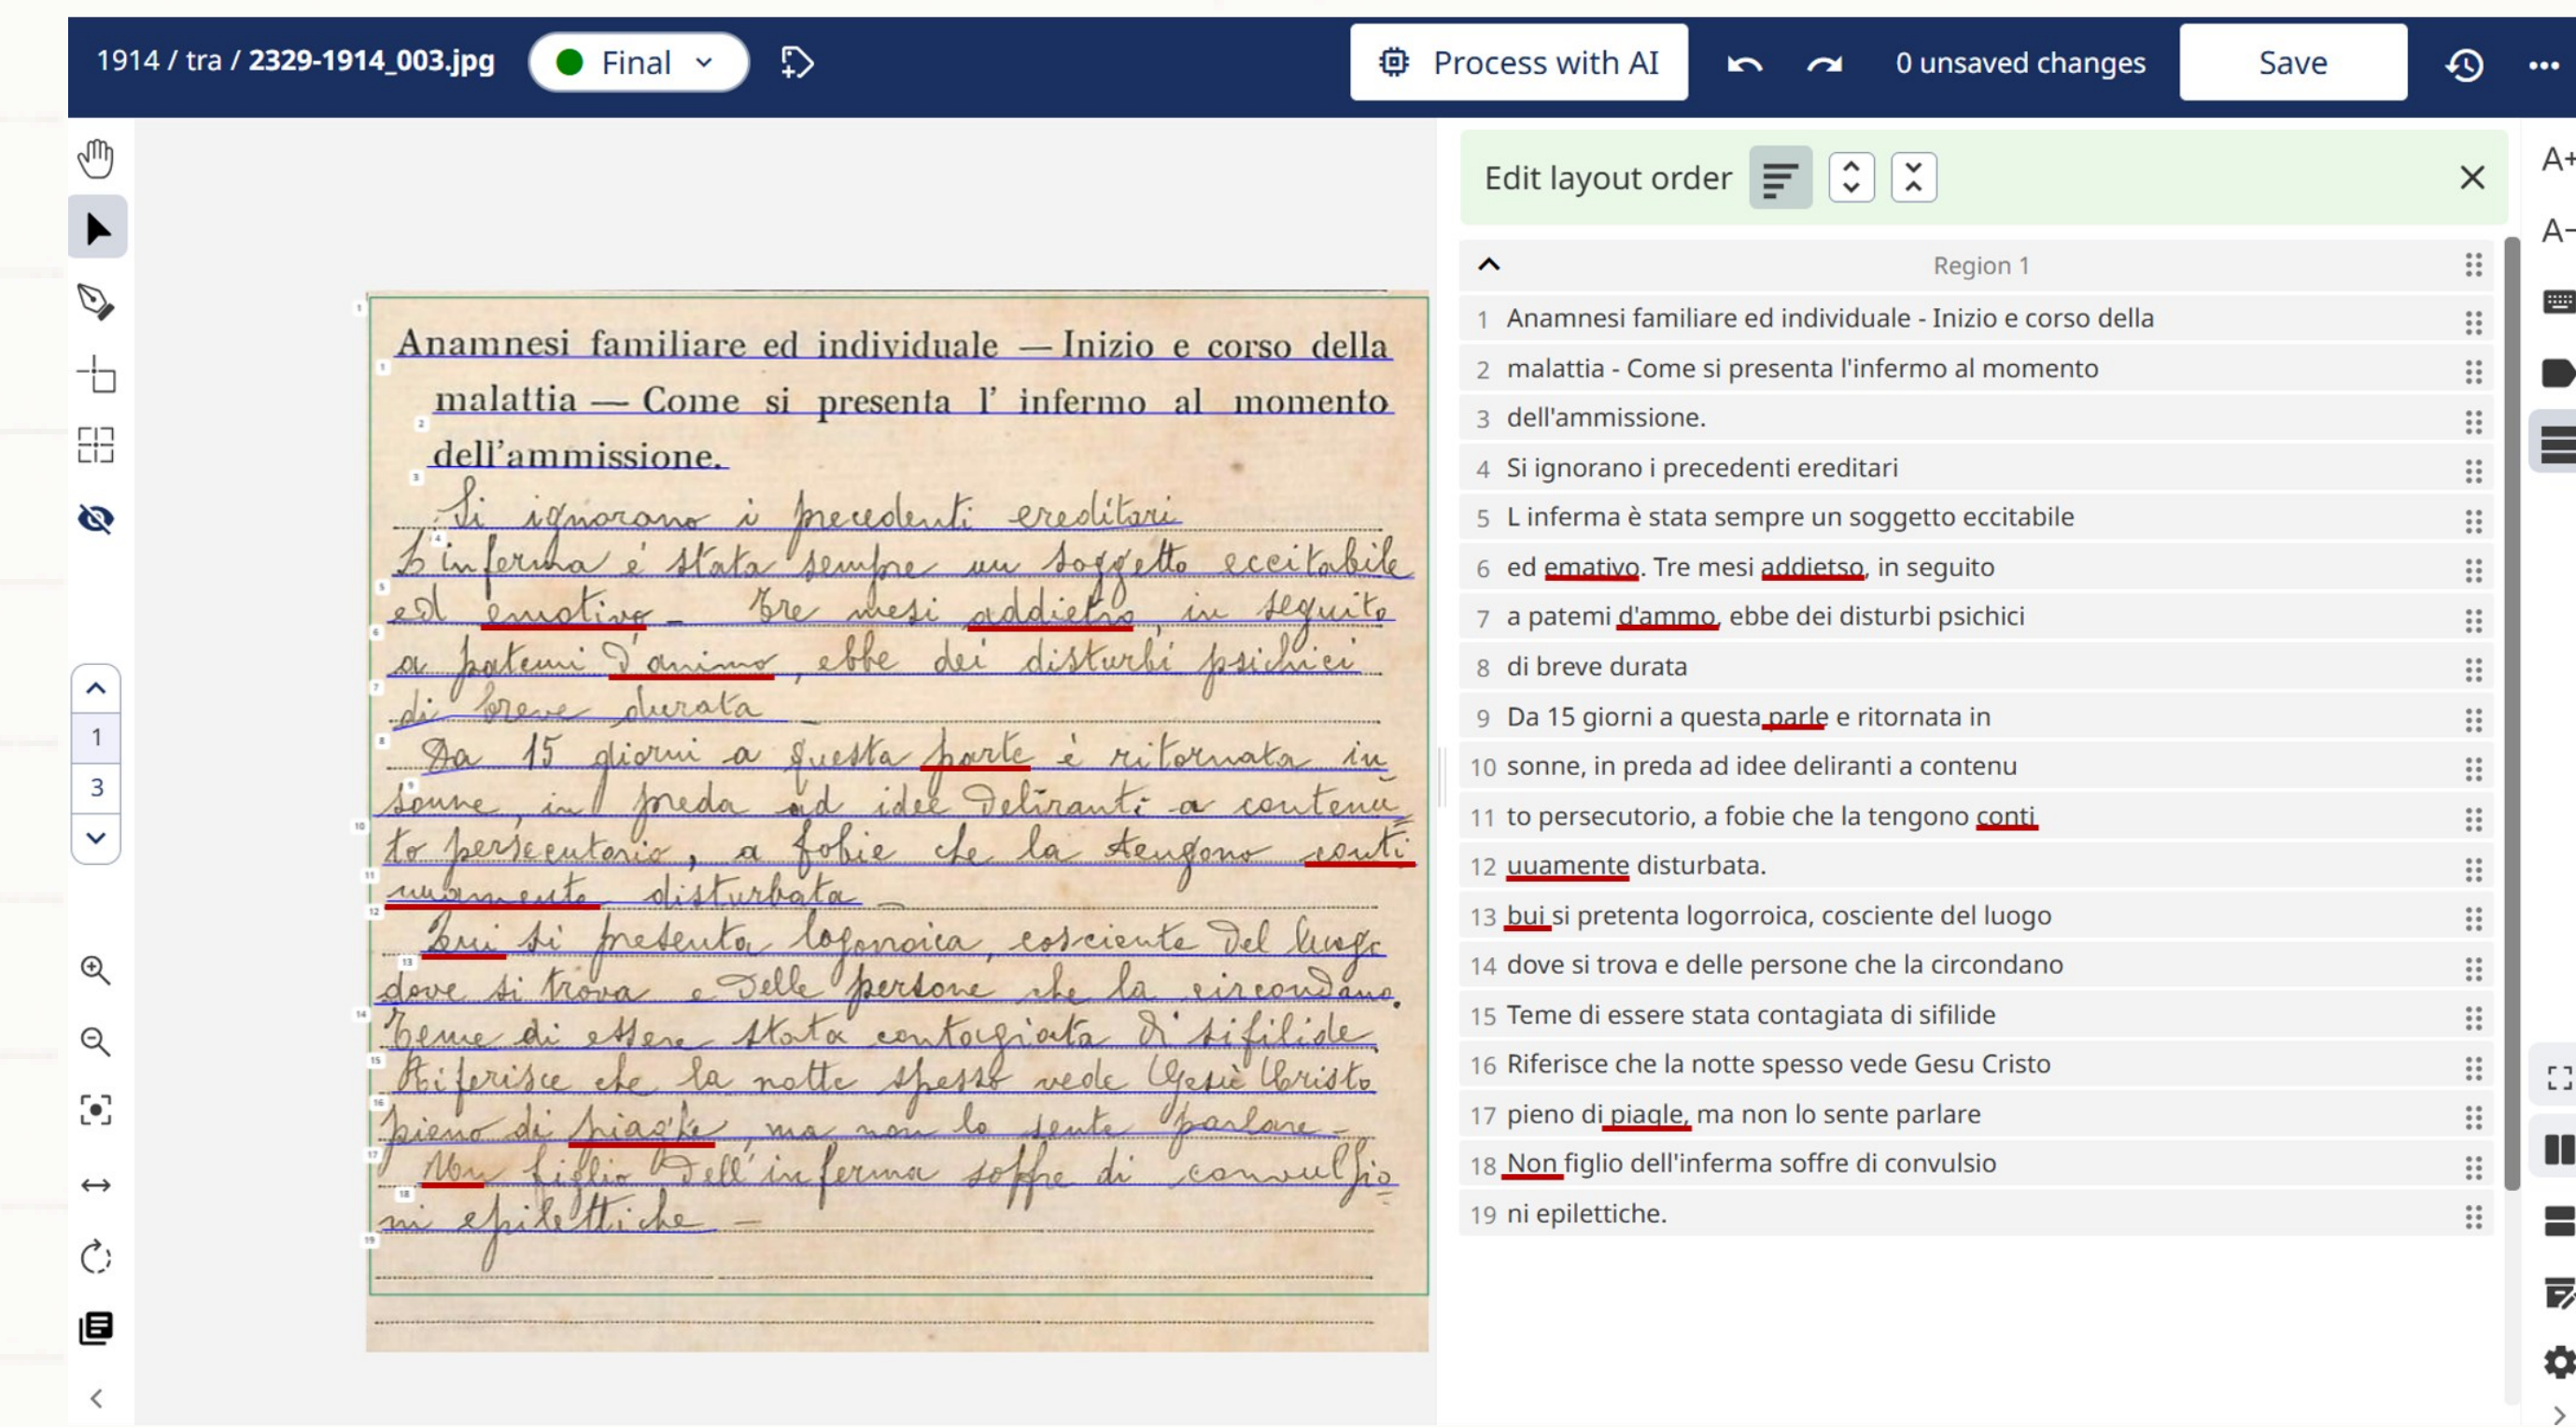 1914 / tra / 2329-1914_003.jpg
Final
Process with AI
0 unsaved changes
Save
Anamnesi familiare ed individuale — Inizio e corso della
malattia — Come si presenta l' infermo al momento
dell'ammissione.
Si ignorano i precedenti ereditari
L'inferma è stata sempre un soggetto eccitabile
ed emotivo – Tre mesi addietro, in seguito
a patemi d'animo, ebbe dei disturbi psichici
di breve durata –
Da 15 giorni a questa parte è ritornata in
sonne, in preda ad idee deliranti a contenu
to persecutorio, a fobie che la tengono conti
nuamente disturbata –
Qui si presenta logorroica, cosciente del luogo
dove si trova e delle persone che la circondano.
Teme di essere stata contagiata di sifilide.
Riferisce che la notte spesso vede Gesù Cristo
pieno di piaghe, ma non lo sente parlare –
Un figlio dell'inferma soffre di convulsio=
ni epilettiche –
1
3
Edit layout order
Region 1
1 Anamnesi familiare ed individuale - Inizio e corso della
2 malattia - Come si presenta l'infermo al momento
3 dell'ammissione.
4 Si ignorano i precedenti ereditari
5 L inferma è stata sempre un soggetto eccitabile
6 ed emativo. Tre mesi addietso, in seguito
7 a patemi d'ammo, ebbe dei disturbi psichici
8 di breve durata
9 Da 15 giorni a questa parle e ritornata in
10 sonne, in preda ad idee deliranti a contenu
11 to persecutorio, a fobie che la tengono conti
12 uuamente disturbata.
13 bui si pretenta logorroica, cosciente del luogo
14 dove si trova e delle persone che la circondano
15 Teme di essere stata contagiata di sifilide
16 Riferisce che la notte spesso vede Gesu Cristo
17 pieno di piagle, ma non lo sente parlare
18 Non figlio dell'inferma soffre di convulsio
19 ni epilettiche.
A+
A-